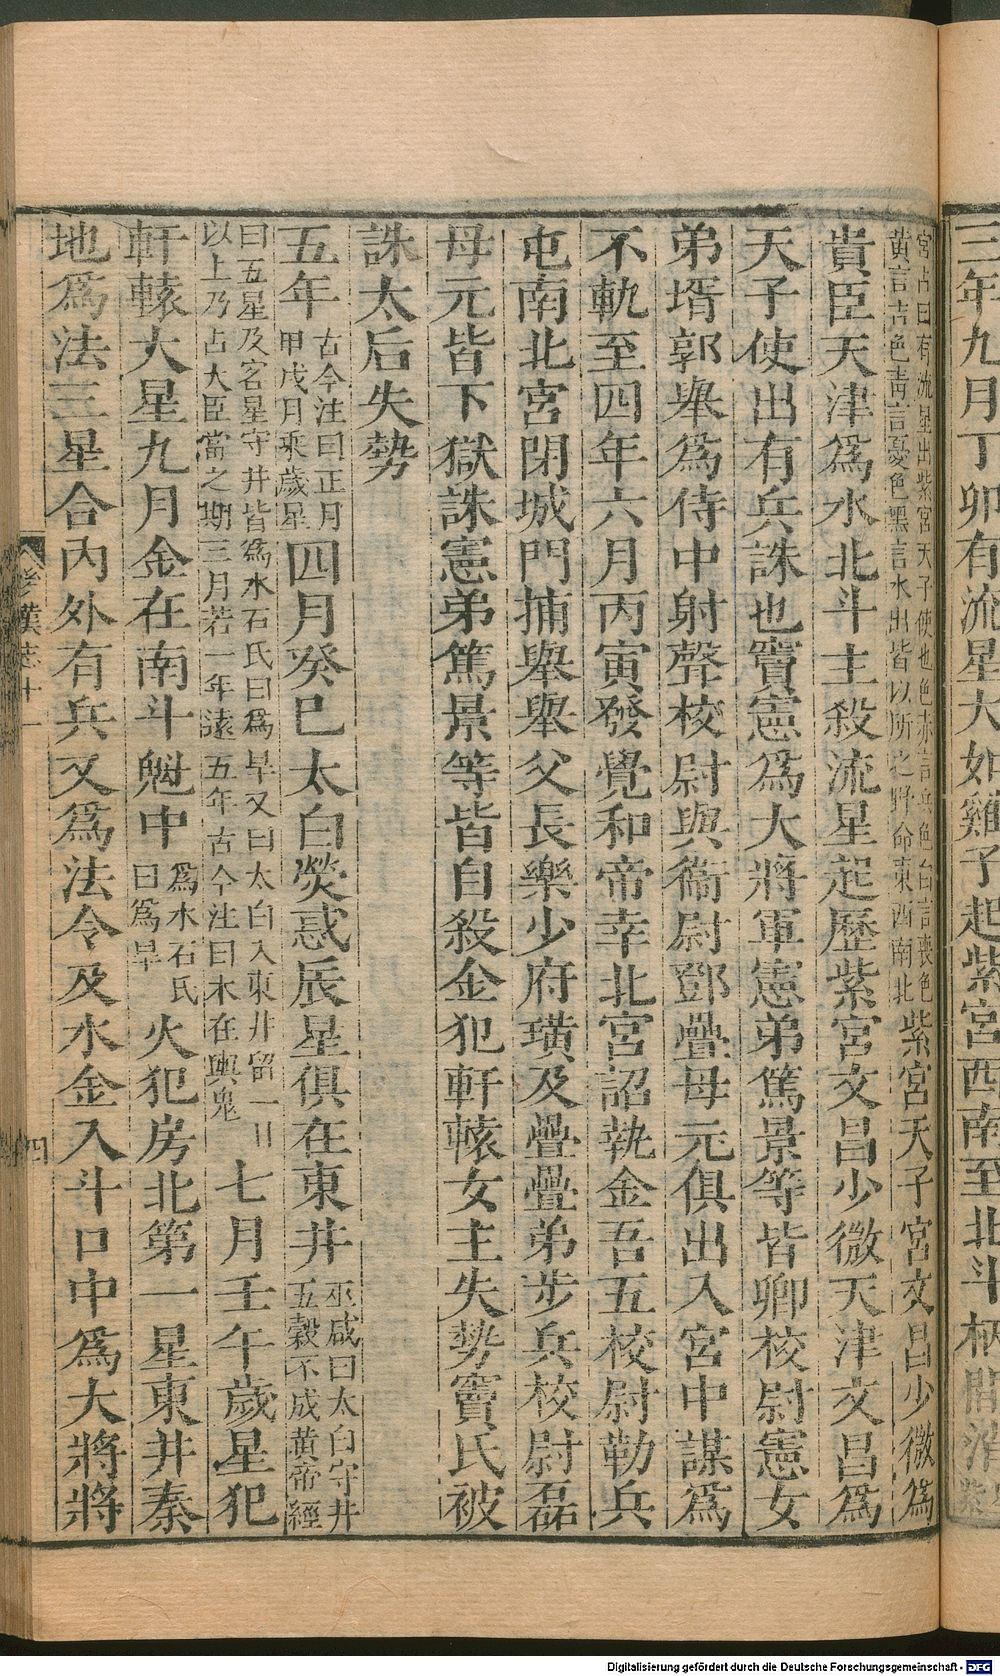 三年九月丁卯有流星大如雞子起紫宮西南至北斗柄間消
宮占曰有流星出紫宮天子使也色赤言兵色白言喪色
黃言吉色青言憂色黑言水出皆以所之野命東西南北紫宮天子宮文昌少微爲
貴臣天津爲水北斗主殺流星起歷紫宮文昌少微天津文昌爲
天子使出有兵誅也竇憲爲大將軍憲弟篤景等皆卿校尉憲女
弟壻郭舉爲侍中射聲校尉與衞尉鄧疊母元俱出入宮中謀爲
不軌至四年六月丙寅發覺和帝幸北宮詔執金吾五校尉勒兵
屯南北宮閉城門捕舉舉父長樂少府璜及疊疊弟步兵校尉磊
母元皆下獄誅憲弟篤景等皆自殺金犯軒轅女主失勢竇氏被
誅太后失勢
五年古今注曰正月
甲戌月乘歲星四月癸巳太白熒惑辰星俱在東井巫咸曰太白守井
五穀不成黃帝經
曰五星及客星守井皆爲水石氏曰爲旱又曰太白入東井留一日
以上乃占大臣當之期三月若一年遠五年古今注曰木在輿鬼七月壬午歲星犯
軒轅大星九月金在南斗魁中爲水石氏
曰爲旱火犯房北第一星東井秦
地爲法三星合內外有兵又爲法令及水金入斗口中爲大將將
後漢志十一
四
Digitalisierung gefördert durch die Deutsche Forschungsgemeinschaft - DFG